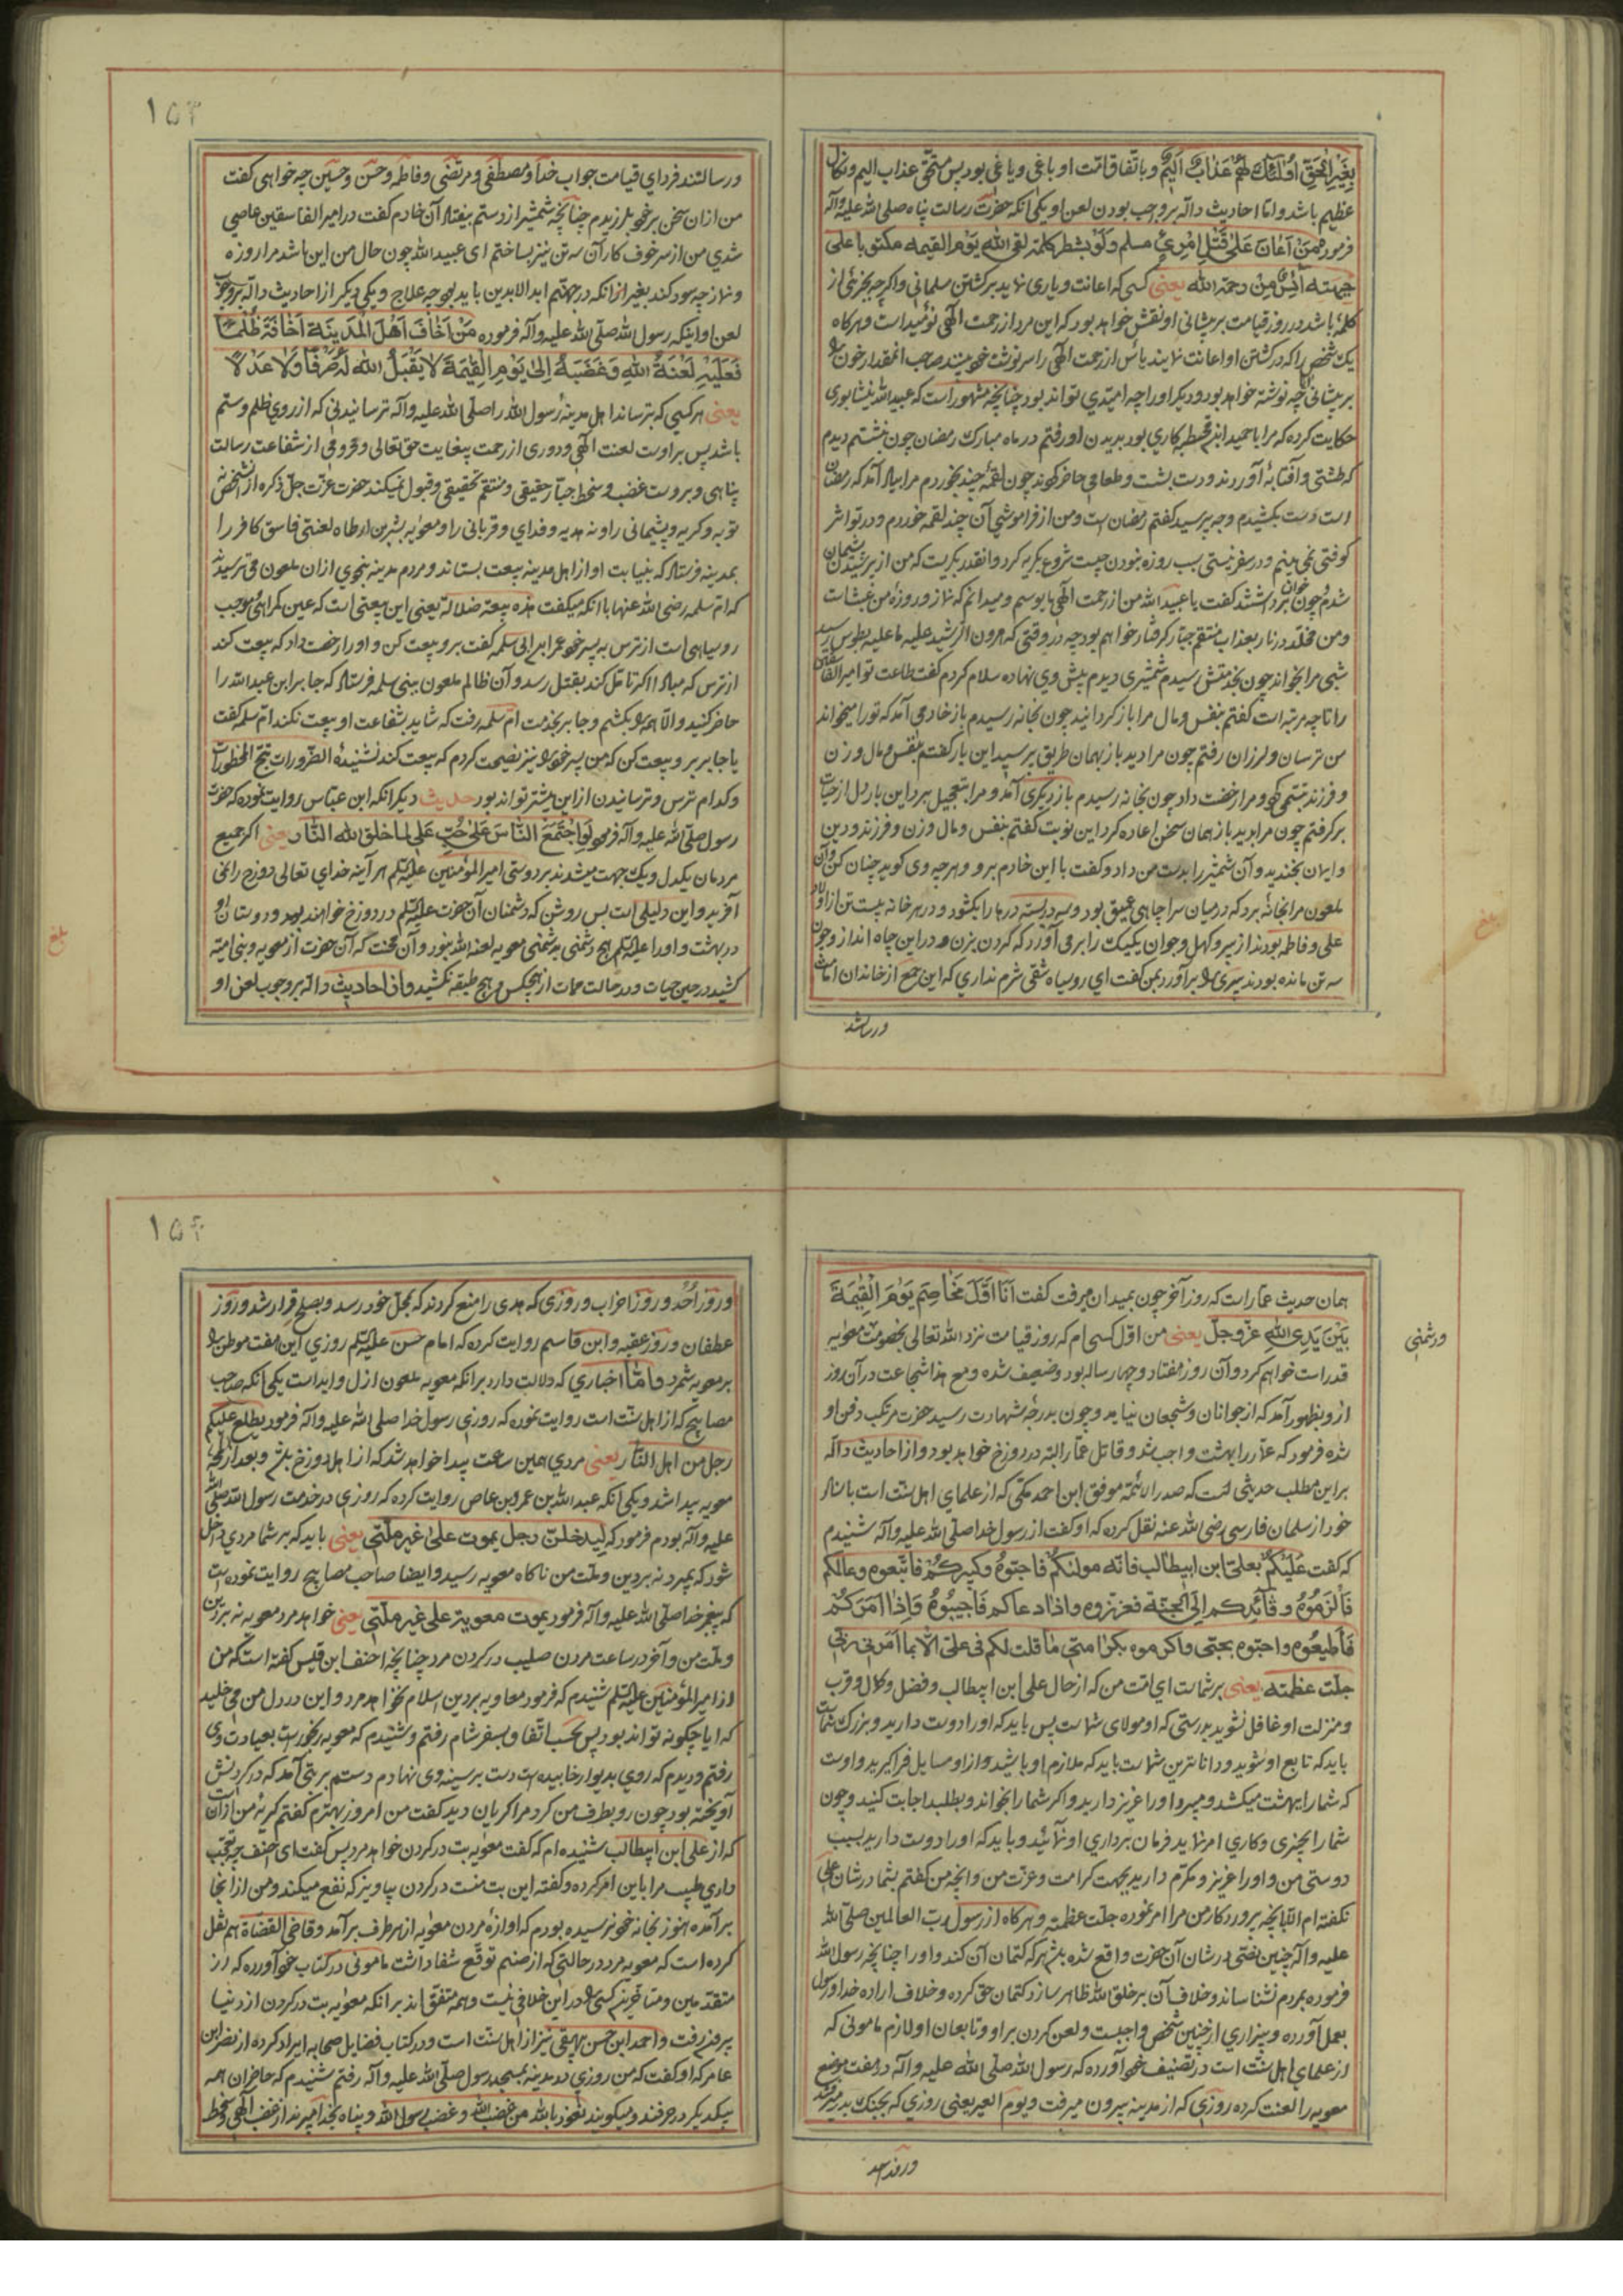 بِغَيْرِ الْحَقِّ اُولٰئِكَ لَهُمْ عَذَابٌ اَلِيمٌ و باتّفاق امّت او باغی و یاغی بود پس مستحقّ عذاب الیم و نکال
عظیم باشد و امّا احادیث دالّه بر وجب بودن لعن او یکی آنکه حضرت رسالت پناه صلی الله علیه وآله
فرمود مَنْ اَعَانَ عَلٰی قَتْلِ امْرِئٍ مسلم وَلَوْ بشطر کلمة لقی الله یَوْمَ القیمه مکتوبا علی
جبهته آیِسٌ مِنْ رحمة الله یعنی کسی که اعانت و یاری نماید بر کشتن مسلمانی و اگرچه بجزئی از
کلمه باشد در روز قیامت بر پیشانی او نقش خواهد بود که این مرد از رحمت الهی نومید است و هرگاه
یک شخص را که در کشتن او اعانت نمایند یأس از رحمت الهی را سرنوشت
بر پیشانی چه نوشته خواهد بود و دیگر او را چه امیّدی تواند بود چنانچه مشهور است که عبید الله نیشابوری
حکایت کرده که مرا با حمید ابن قحطبه کاری بود بدیدن او رفتم در ماه مبارک رمضان چون نشستم دیدم
که طشتی و آفتابهٔ آوردند و دست بشست و طعامی حاضر کردند چون لقمهٔ چند بخوردم مرا بیاد آمد که رمضان
است دست بکشیدم وجه پرسید گفتم رمضان است و من از فراموشی آن چند لقمه خوردم و در تو اثر
کوفتی نمی بینم و در سفر نیستی سبب روزه نبودن چیست شروع بگریه کرد و آنقدر بگریست که من از پرسیدن پشیمان
شدم چون خوان برداشتند گفت یا عبید الله من از رحمت الهی مایوسم و میدانم که نماز و روزهٔ من عبث است
و من مخلّد در نار بعذاب منتقم جبّار گرفتار خواهم بود چه در وقتی که هرون الرشید علیه ما علیه بطوس رسید
شبی مرا بخواند چون بخدمتش رسیدم شمشیری دیدم پیش وی نهاده سلام کردم گفت طاعت تو امیر الفاسقین
را تا چه مرتبه است گفتم بنفس و مال مرا باز گردانید چون بخانه رسیدم باز خادمی آمد که تو را میخواند
من ترسان و لرزان رفتم چون مرا دید باز بهمان طریق پرسید این بار گفتم بنفس و مال و زن
و فرزند تبسّمی کرد و مرا رخصت داد چون بخانه رسیدم باز دیگری آمد و مرا بتعجیل برد این بار دل از حیات
برگرفتم چون مرا بدید باز همان سخن اعاده کرد این نوبت گفتم بنفس و مال و زن و فرزند و دین
و ایمان بخندید و آن شمشیر را بدست من داد و گفت با این خادم برو و هرچه وی گوید چنان کن و آن
ملعون مرا بخانهٔ برد که در میان سرا چاهی عمیق بود و سه در بسته درها را بکشود و در هر خانه بیست تن از اولاد
علی و فاطمه بودند از پیر و کهل و جوان یکیک را بر می آورد که گردن بزن و در این چاه انداز و چون
سه تن مانده بودند پیری را برآورد بمن گفت ای روسیاه شقی شرم نداری که این جمع از خاندان امامت
و رسالتند
۱۵۳
و رسالتند فردای قیامت جواب خدا و مصطفی و مرتضی و فاطمه و حسن و حسین چه خواهی گفت
من از ان سخن بر خود بلرزیدم چنانچه شمشیر از دستم بیفتاد آن خادم گفت در امیر الفاسقین عاصی
شدی من از سر خوف کار آن سه تن نیز بساختم ای عبید الله چون حال من این باشد مرا روزه
و نماز چه سود کند بغیر از آنکه در جهنّم ابد الابدین باید بود چه علاج و یکی دیگر از احادیث دالّه بر وجوب
لعن او اینکه رسول الله صلّی الله علیه وآله فرموده مَنْ اَخَافَ اَهْلَ الْمَدِینَةِ اَخَافَةً ظُلْمًا
فَعَلَیْهِ لَعْنَةُ اللهِ وَغَضَبُهُ اِلٰی یَوْمِ الْقِیٰمَةِ لَا یَقْبَلُ اللهُ لَهُ صَرْفًا وَلَا عَدْلًا
یعنی هر کسی که بترساند اهل مدینهٔ رسول الله را صلّی الله علیه وآله ترسانیدنی که از روی ظلم و ستم
باشد پس بر اوست لعنت الهی و دوری از رحمت بیغایت حق تعالی و محرومی از شفاعت رسالت
پناهی و بر وست غضب و سخط جبّار حقیقی و منتقم تحقیقی و قبول نمیکند حضرت عزّت جلّ ذکره از آنشخص نه
توبه و گریه و پشیمانی را و نه هدیه و فدای و قربانی را و معویه بشر بن ارطاه لعنتی فاسق کافر را
بمدینه فرستاد که بنیابت او از اهل مدینه بیعت بستاند و مردم مدینه بنحوی از ان ملعون می ترسیدند
که امّ سلمه رضی الله عنها با آنکه میگفت هذه بیعة ضلالة یعنی این بیعتی است که عین گمراهی و موجب
روسیاهی است از ترس به پسر خود عمر ابن ابی سلمه گفت برو بیعت کن و او را رخصت داد که بیعت کند
از ترس که مبادا اگر تامّل کند بقتل رسد و آن ظالم ملعون بنی سلمه فرستاد که جابر ابن عبد الله را
حاضر کنید و الّا همه را بکشم و جابر بخدمت امّ سلمه رفت که شاید بشفاعت او بیعت نکند امّ سلمه گفت
یا جابر برو بیعت کن که من پسر خود را نیز نصیحت کردم که بیعت کند نشنیدهٔ الضّرورات تبیح المحظورات
و کدام ترس و ترسانیدن از این بیشتر تواند بود حدیث دیگر آنکه ابن عبّاس روایت نموده که حضرت
رسول صلّی الله علیه وآله فرمود لَوِاجْتَمَعَ النَّاسُ عَلٰی حُبِّ عَلِیٍّ لما خلق الله النّار یعنی اگر جمیع
مردمان یکدل و یک جهت میشدند بر دوستی امیر المؤمنین علیه السلام هر آینه خدای تعالی دوزخ را نمی
آفرید و این دلیلی است بس روشن که دشمنان آن حضرت علیه السلام در دوزخ خواهند بود و دوستان او
در بهشت و او را علیه السلام هیچ دشمنی بدشمنی معویه لعنه الله نبود و آن محنت که آن حضرت از معویه و بنی امیّه
کشید در حین حیات و در حالت ممات از هیچکس و هیچ طبقه نکشید و از احادیث دالّه بر وجوب لعن او
بلغ
بلغ
همان حدیث عمّار است که روز آخر چون بمیدان میرفت گفت اَنَا اَوَّلُ مَخَاصِمٍ یَوْمَ الْقِیٰمَةِ
بَیْنَ یَدَیِ اللهِ عزّ وجلّ یعنی من اوّل کسی ام که روز قیامت نزد الله تعالی بخصومت معویه
قد راست خواهم کرد و آن روز هفتاد و چهار ساله بود و ضعیف شده و مع هذا شجاعت در آن روز
از و بظهور آمد که از جوانان و شجعان نیاید و چون بدرجهٔ شهادت رسید حضرت مرتکب دفن او
شده فرمود که عمّار را بهشت واجب شد و قاتل عمّار البته در دوزخ خواهد بود و از احادیث دالّه
بر این مطلب حدیثی است که صدر الائمّه موفق ابن احمد مکّی که از علمای اهل سنّت است باسناد
خود از سلمان فارسی رضی الله عنه نقل کرده که او گفت از رسول خدا صلّی الله علیه وآله شنیدم
که گفت عَلَیْکُمْ بعلیّ ابن ابیطالب فانّه مولٰیکُمْ فاحبّوهُ وکبیرکُمْ فاتّبعوه وعالمکم
فَاَلْزَمُوهُ وقَائِدکم اِلَی الجَنّة فعزّزوه واذا دعاکم فَاَجِیبُوهُ وَاِذَا اَمَرَکُمْ
فَاَطِیعُوهُ واحبّوه بحبّی واکرموه بکرامتی مَا قلت لکم فی علیّ الّا بما اَمَرنی ربّی
جلّت عظمته یعنی بر شماست ای امّت من که از حال علی ابن ابیطالب و فضل و کمال و قرب
و منزلت او غافل نشوید بدرستی که او مولای شماست پس باید که او را دوست دارید و بزرگ شماست
باید که تابع او شوید و دانا ترین شماست باید که ملازم او باشید و از او مسایل فرا گیرید و اوست
که شما را بهشت میکشد و میبرد او را عزیز دارید و اگر شما را بخواند و بطلبد اجابت کنید و چون
شما را بچیزی و کاری امر نماید فرمان برداری او نمائید و باید که او را دوست دارید بسبب
دوستی من و او را عزیز و مکرّم دارید بجهت کرامت و عزّت من و آنچه من گفتم بشما در شان علی
نگفته ام الّا بآنچه پروردگار من مرا امر نموده جلّت عظمته و هرگاه از رسول ربّ العالمین صلّی الله
علیه وآله چنین نصّی در شان آن حضرت واقع شده باشد هرکه کتمان آن کند و او را چنانچه رسول الله
فرموده بمردم نشناساند و خلاف آن بر خلق الله ظاهر سازد کتمان حق کرده و خلاف اراده خدا و رسول
بعمل آورده و بیزاری از چنین شخص واجبست و لعن کردن بر او و تابعان او لازم مامونی که
از علمای اهل سنّت است در تصنیف خود آورده که رسول الله صلّی الله علیه وآله در هفت موضع
معویه را لعنت کرده روزی که از مدینه بیرون میرفت و یوم العیر یعنی روزی که بجنگ بدر میرفتند
و روز احد
و دشمنی
۱۵۴
و روز اُحُد و روز احزاب و روزی که هدی را منع کردند که بمحلّ خود رسد و بصلح قرار شد و روز
غطفان و روز عقبه و ابن قاسم روایت کرده که امام حسن علیه السلام روزی این هفت موطن را
بر معویه شمرد و امّا اخباری که دلالت دارد بر آنکه معویه ملعون ازل و ابد است یکی آنکه صاحب
مصابیح که از اهل سنّت است روایت نموده که روزی رسول خدا صلی الله علیه وآله فرمود یطلع علیکم
رجل من اهل النّار یعنی مردی همین ساعت پیدا خواهد شد که از اهل دوزخ باشد و بعد از لمحهٔ
معویه پیدا شد و یکی آنکه عبد الله بن عمرو بن عاص روایت کرده که روزی در خدمت رسول الله صلّی الله
علیه وآله بودم فرمود که لیدخلنّ رجل یموت علیٰ غیر ملّتی یعنی باید که بر شما مردی داخل
شود که بمیرد نه بر دین و ملّت من ناگاه معویه رسید و ایضا صاحب مصابیح روایت نموده است
که پیغمبر خدا صلّی الله علیه وآله فرمود یموت معویة علی غیر ملّتی یعنی خواهد مرد معویه نه بر دین
و ملّت من و آخر در ساعت مردن صلیب در گردن مرد چنانچه احنف ابن قیس گفته است که من
از امیر المؤمنین علیه السلام شنیدم که فرمود معاویه بر دین اسلام نخواهد مرد و این در دل من می خلید
که ایا چگونه تواند بود پس بحسب اتّفاق بسفر شام رفتم و شنیدم که معویه رنجور است بعیادت وی
رفتم و دیدم که روی بدیوار خابیده است دست بر سینه وی نهادم دستم بر بتی آمد که در گردنش
آویخته بود چون رو بطرف من کرد مرا گریان دید گفت من امروز بهترم گفتم گریهٔ من از آن است
که از علی ابن ابیطالب شنیده ام که گفت معویه بت در گردن خواهد مرد پس گفت ای احنف چه تعجّب
داری طبیب مرا باین امر کرده و گفته این بت منت در گردن بیاویز که نفع میکند و من از انجا
برآمده هنوز بخانه خود نرسیده بودم که اوازهٔ مردن معویه از هر طرف برآمد و قاضی القضاة هم نقل
کرده است که معویه مرد در حالتی که از صنم توقّع شفا داشت مامونی در کتاب خود آورده که از
متقدّمین و متاخّرین کسی را در این خلافی نیست و همه متّفق اند بر آنکه معویه بت در گردن از دنیا
بیرون رفت و احمد ابن حسن بیهقی نیز از اهل سنّت است و در کتاب فضایل صحابه ایراد کرده از نصر ابن
عامر که او گفت که من روزی در مدینه بمسجد رسول صلّی الله علیه وآله رفتم شنیدم که حاضران همه
بیکدیگر در حرفند و میگویند نعوذ بالله من غضب الله و غضب رسول الله و پناه بخدا میبرند از غضب الهی و سخط